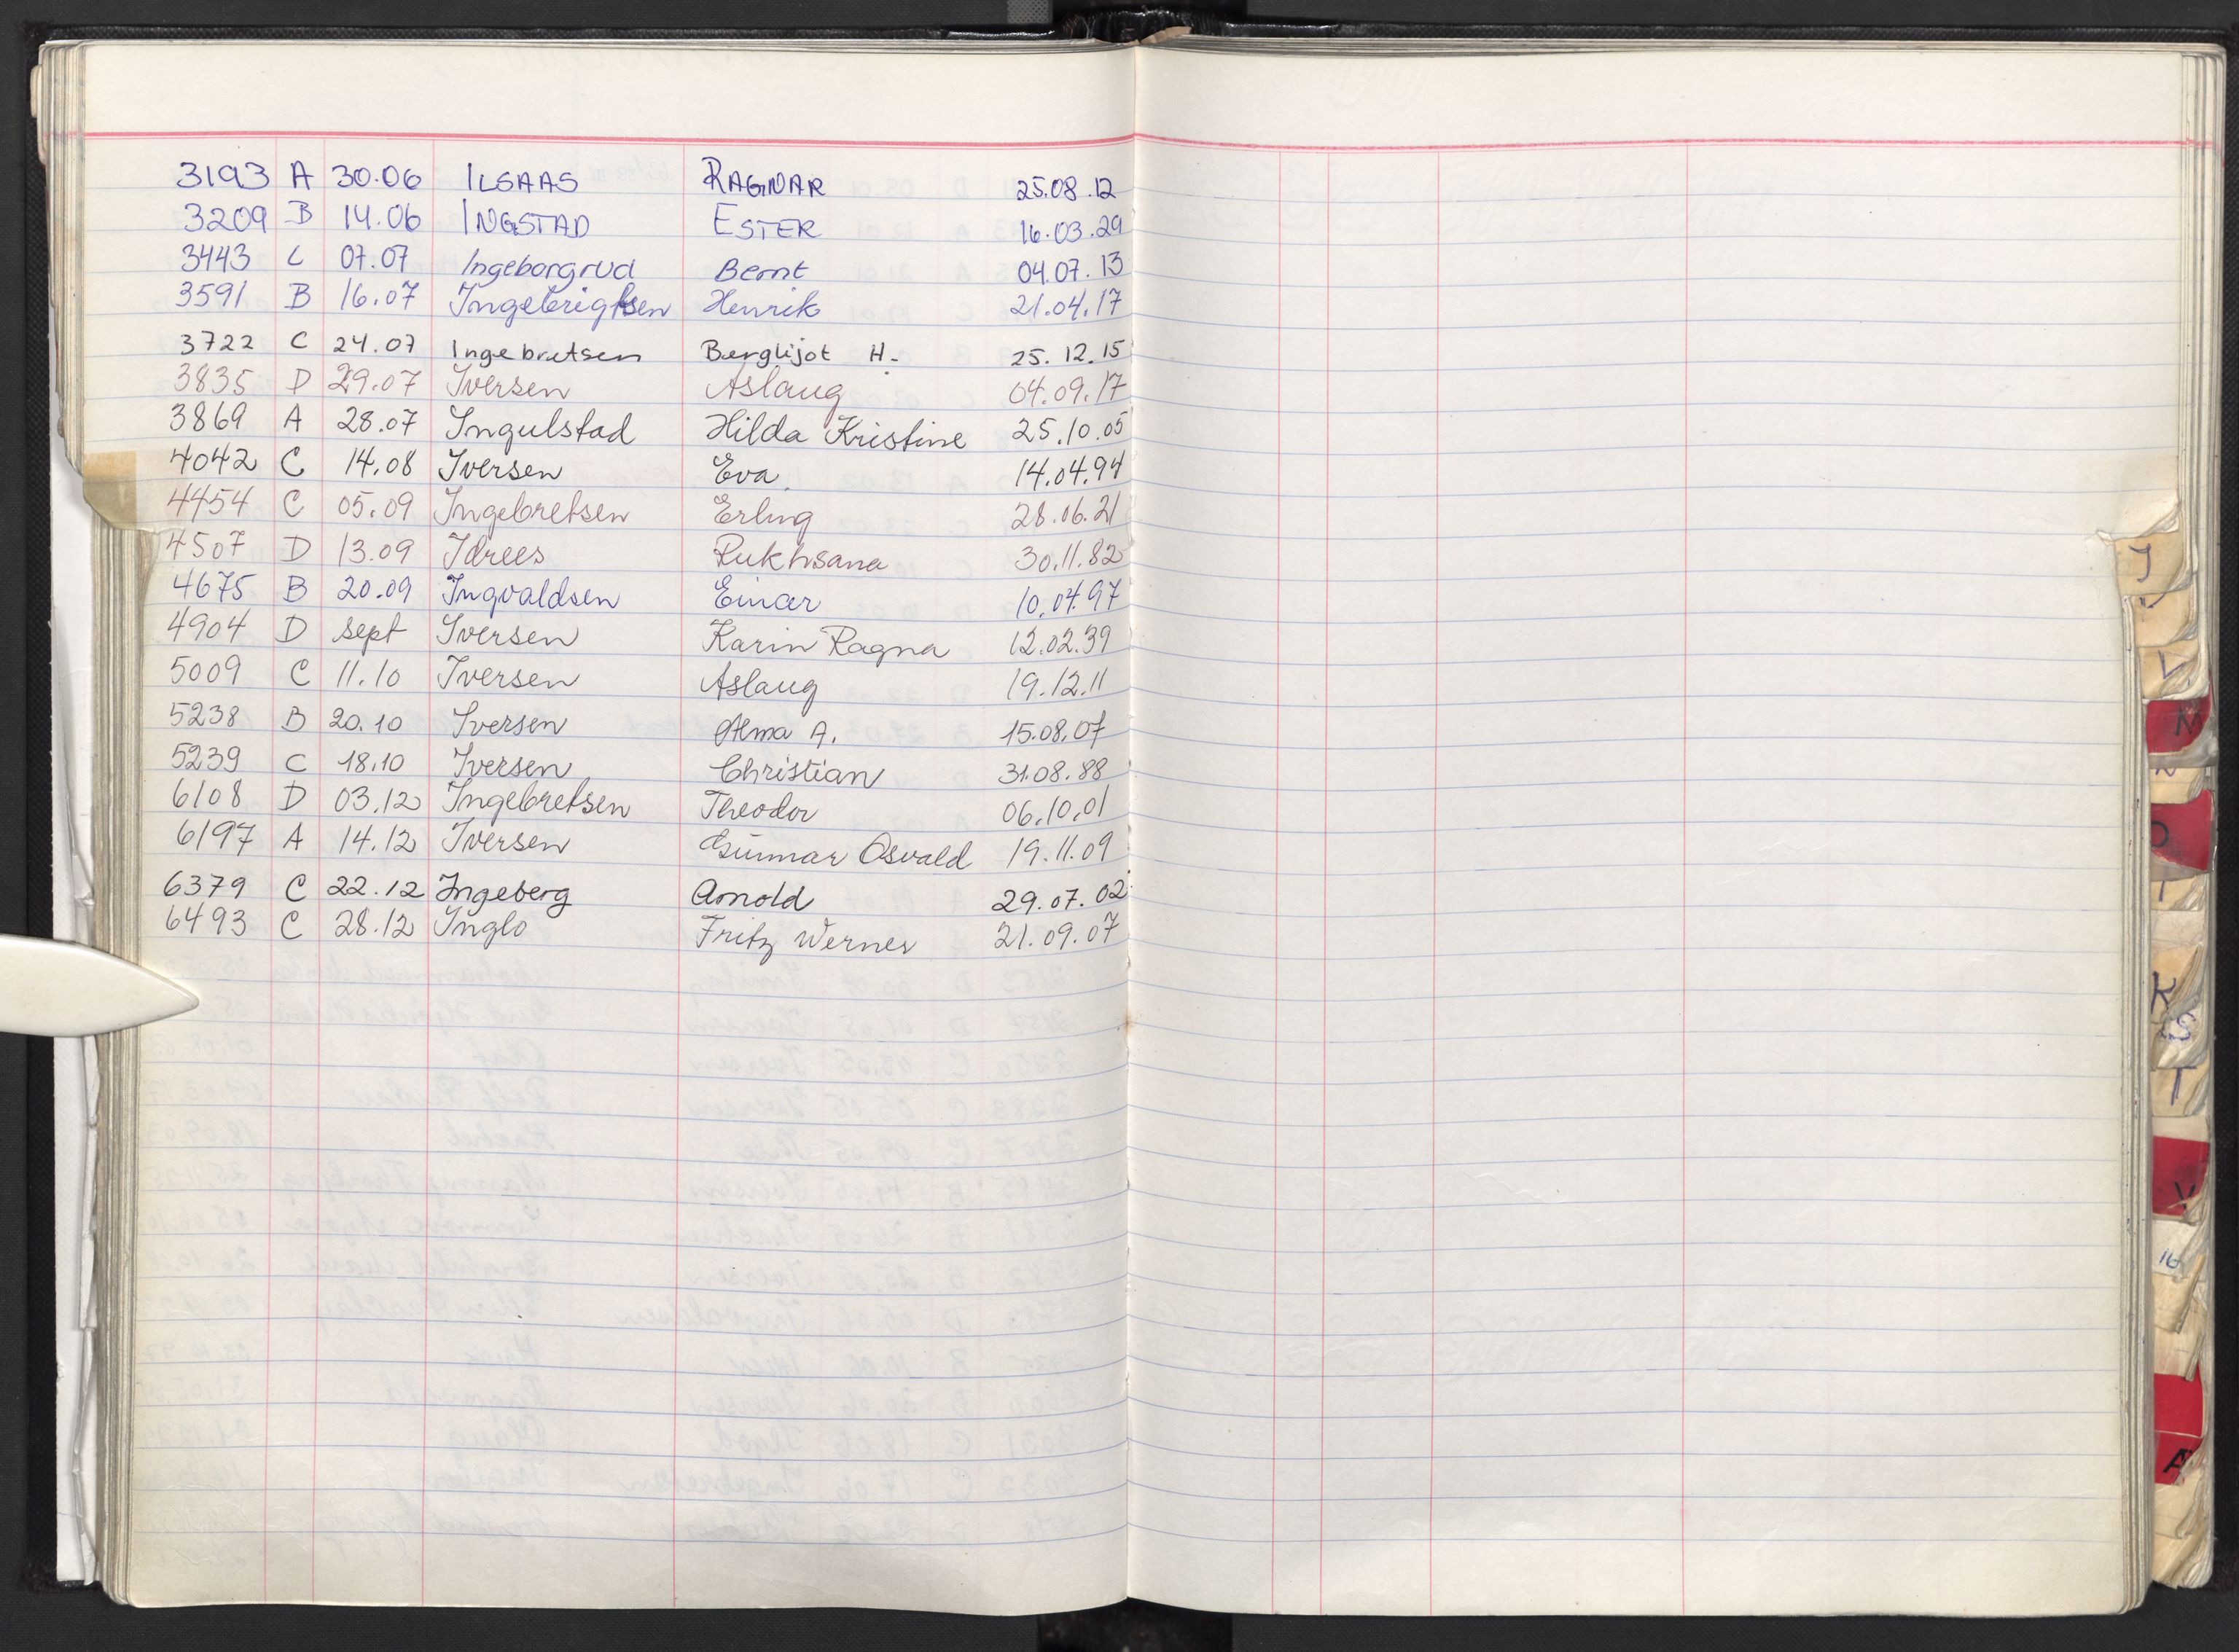 3193 A 30.06 ILSAAS RAGNAR 25.08.12
3209 B 14.06 INGSTAD ESTER 16.03.29
3443 C 07.07 Ingeborgrud Bernt 04.07.13
3591 B 16.07 Ingebrigtsen Henrik 21.04.17
3722 C 24.07 Ingebretsen Berglijot H. 25.12.15
3835 D 29.07 Iversen Aslaug 04.09.17
3869 A 28.07 Ingulstad Hilda Kristine 25.10.05
4042 C 14.08 Iversen Eva 14.04.94
4454 C 05.09 Ingebretsen Erling 28.06.21
4507 D 13.09 Idrees Rukhsana 30.11.82
4675 B 20.09 Ingvaldsen Einar 10.04.97
4904 D sept Iversen Karin Ragna 12.02.39
5009 C 11.10 Iversen Aslaug 19.12.11
5238 B 20.10 Iversen Alma A. 15.08.07
5239 C 18.10 Iversen Christian 31.08.88
6108 D 03.12 Ingebretsen Theodor 06.10.01
6197 A 14.12 Iversen Gunnar Osvald 19.11.09
6379 C 22.12 Ingeberg Arnold 29.07.02
6493 C 28.12 Inglo Fritz Werner 21.09.07
J
L
M
N
O
K
S
T
V
16
A